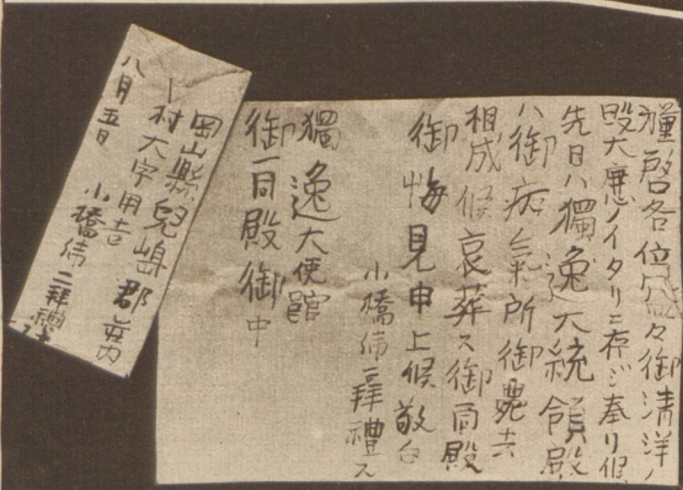 謹啓各位益々御清洋ノ
段大慶ノイタリニ存ジ奉リ候
先日ハ獨逸大統領殿
ハ御病氣所御薨去
相成候哀葬ス御同殿
御悔見申上候敬白
小橋 二拜禮ス
獨逸大使館
御一同殿御中
岡山縣兒嶋郡荘内
村大字用吉
八月五日 小橋 二拜禮